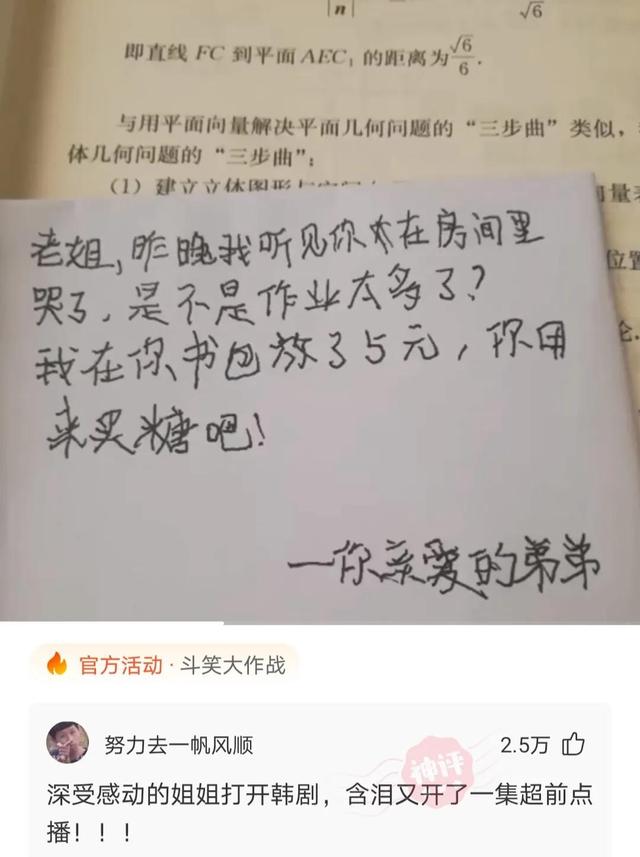 |n|
√6
即直线 FC 到平面 AEC₁ 的距离为√6/6.
与用平面向量解决平面几何问题的“三步曲”类似，
体几何问题的“三步曲”：
(1) 建立立体图形与空间
向量
位置
论.
老姐，昨晚我听见你在房间里
哭了，是不是作业太多了？
我在你书包放了5元，你用
来买糖吧！
一你亲爱的弟弟
官方活动·斗笑大作战
努力去一帆风顺
2.5万
神评
深受感动的姐姐打开韩剧，含泪又开了一集超前点
播！！！